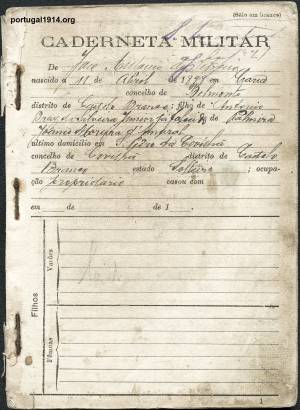 portugal1914.org
(Selo em branco)
CADERNETA MILITAR
De José
nascido a 11 de Abril de 1899 em Caria
concelho de Belmonte
distrito de Castelo Branco, filho de António
Silveira e de Palmira
Moreira
último domicílio em S. Pedro da Covilhã
concelho de Covilhã distrito de Castelo
Branco estado Solteiro; ocupa-
ção proprietario casou com
em de de 1
Filhos
Varões
Fêmeas
1